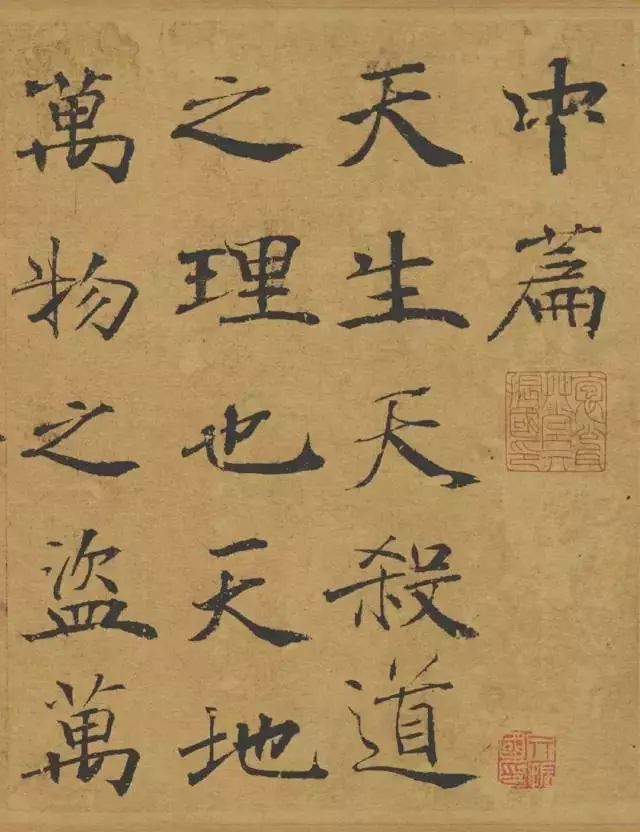 中篇
天生天殺道
之理也天地
萬物之盜萬